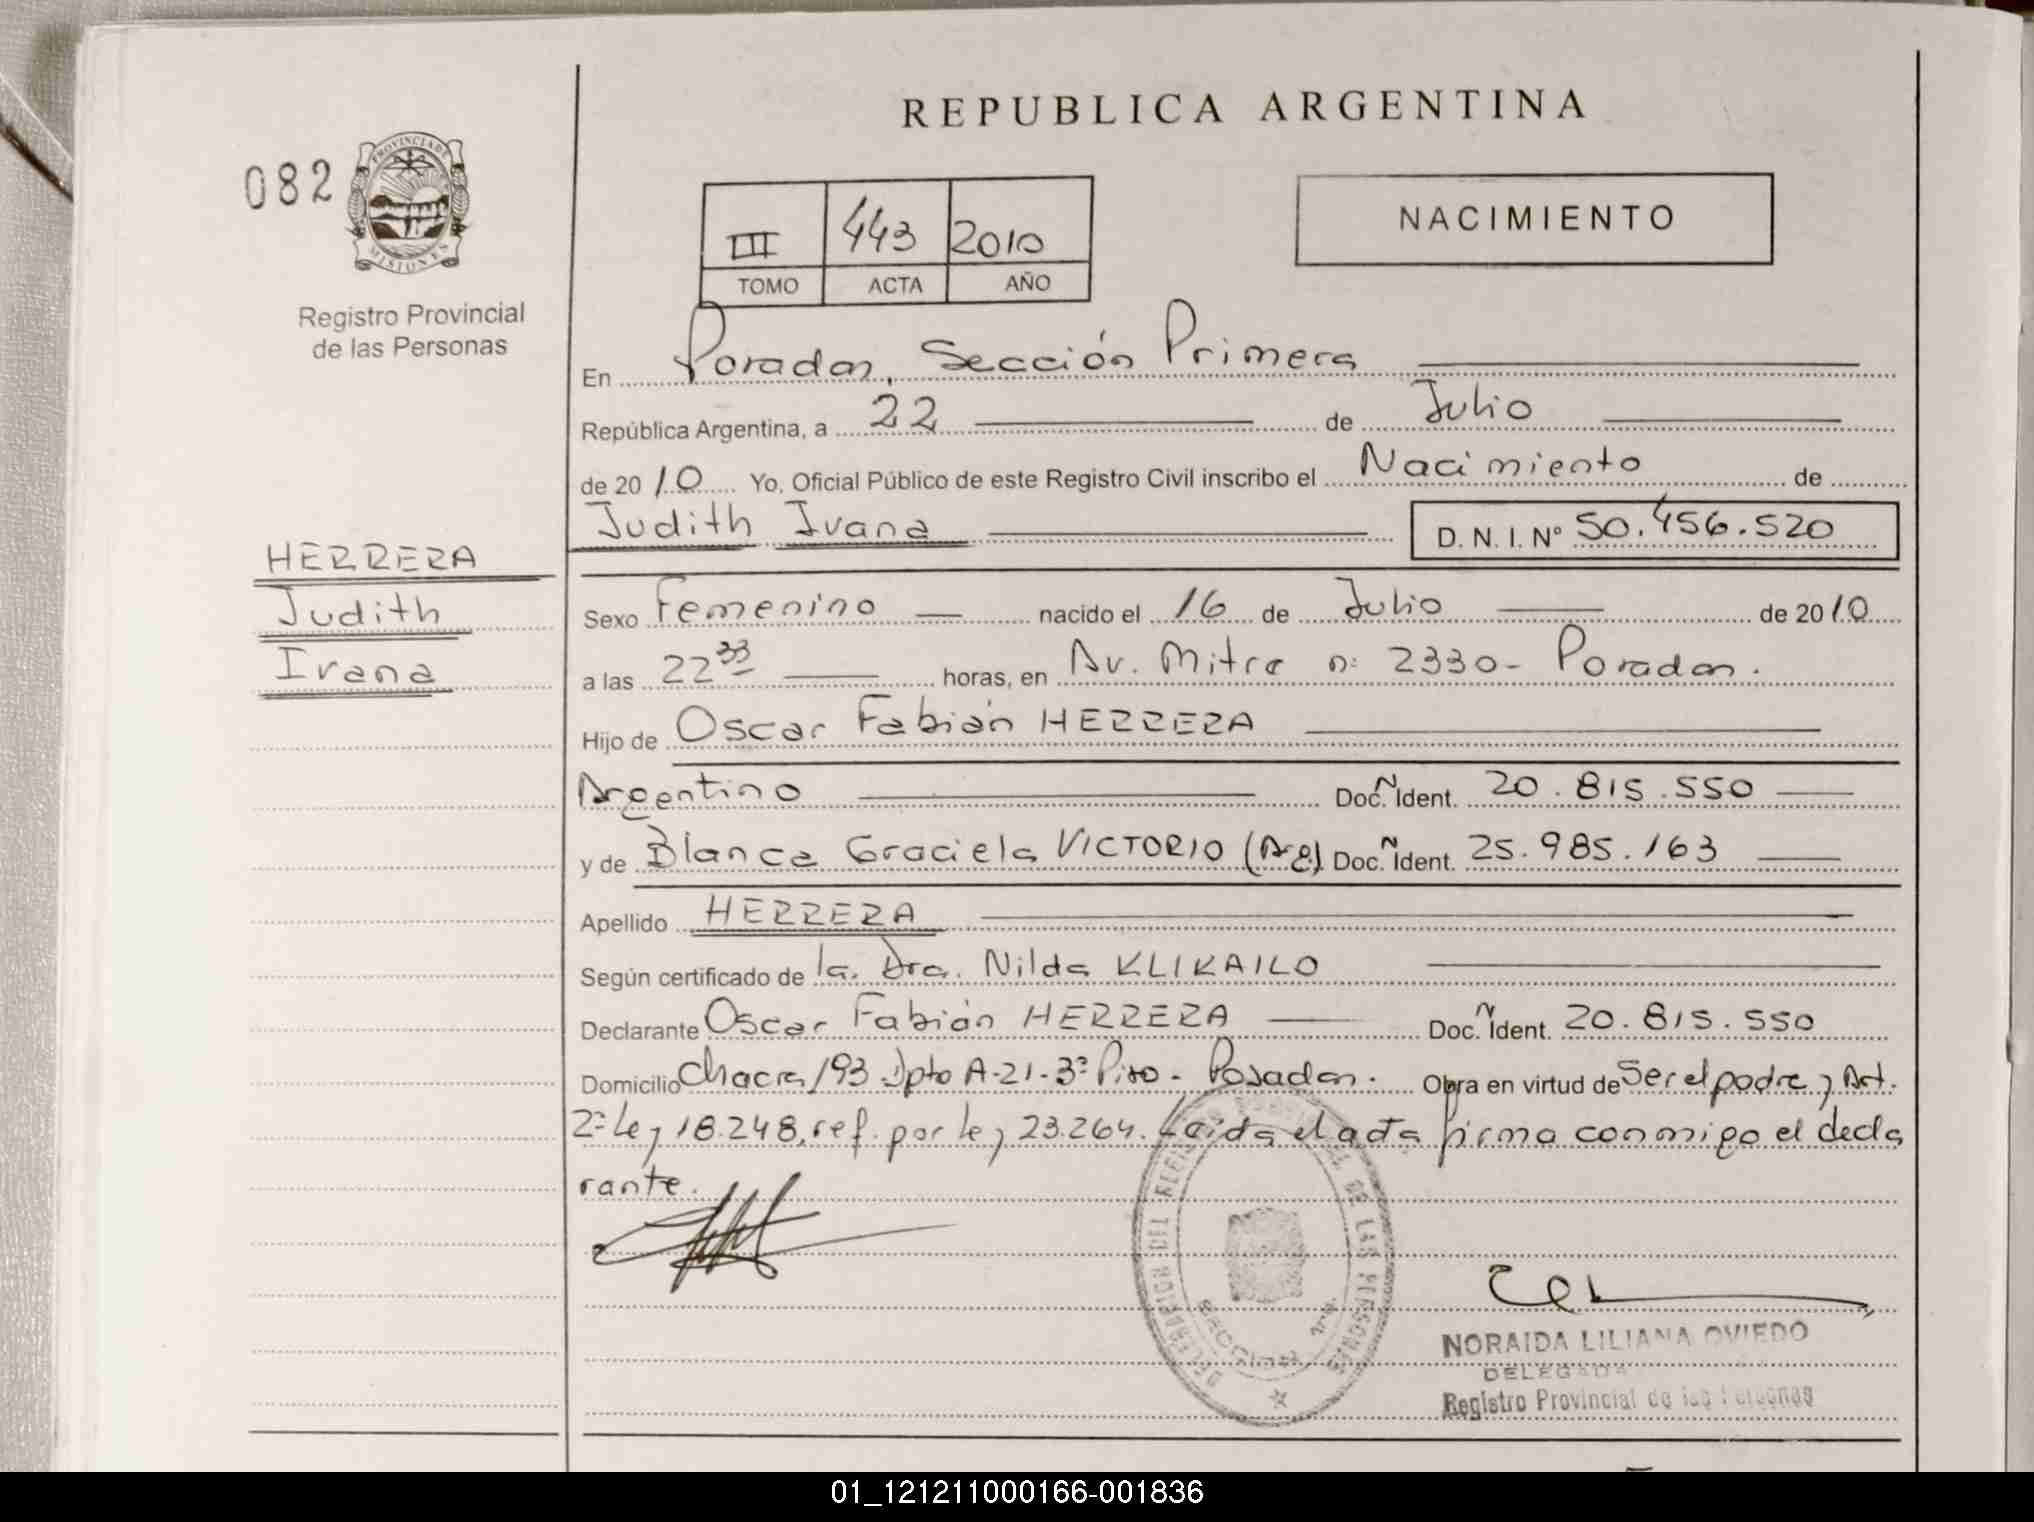 REPUBLICA ARGENTINA
082
PROVINCIA DE
MISIONES
Registro Provincial
de las Personas
III 443 2010
TOMO ACTA AÑO
NACIMIENTO
En Posadas, Sección Primera
República Argentina, a 22 de Julio
de 2010 Yo, Oficial Público de este Registro Civil inscribo el Nacimiento de
Judith Ivana D. N. I. Nº 50.456.520
HERRERA
Judith
Ivana
Sexo Femenino nacido el 16 de Julio de 2010
a las 22 33 horas, en Av. Mitre n: 2330- Posadas.
Hijo de Oscar Fabián HERRERA
Argentino Doc. N Ident. 20.815.550
y de Blanca Graciela VICTORIO (Arg) Doc. N Ident. 25.985.163
Apellido HERRERA
Según certificado de la. Dra. Nilda KLIKAILO
Declarante Oscar Fabián HERRERA Doc. N Ident. 20.815.550
Domicilio Chacra 193 Dpto A-21-3º Piso - Posadas. Obra en virtud de Ser el padre y Art.
2º Ley 18.248, ref. por ley 23.264. Leída el acta firma conmigo el decla
rante.
DELEGACION DEL REGISTRO PROVINCIAL DE LAS PERSONAS
SECCION 1ra.
NORAIDA LILIANA OVIEDO
DELEGADA
Registro Provincial de las Personas
01_121211000166-001836